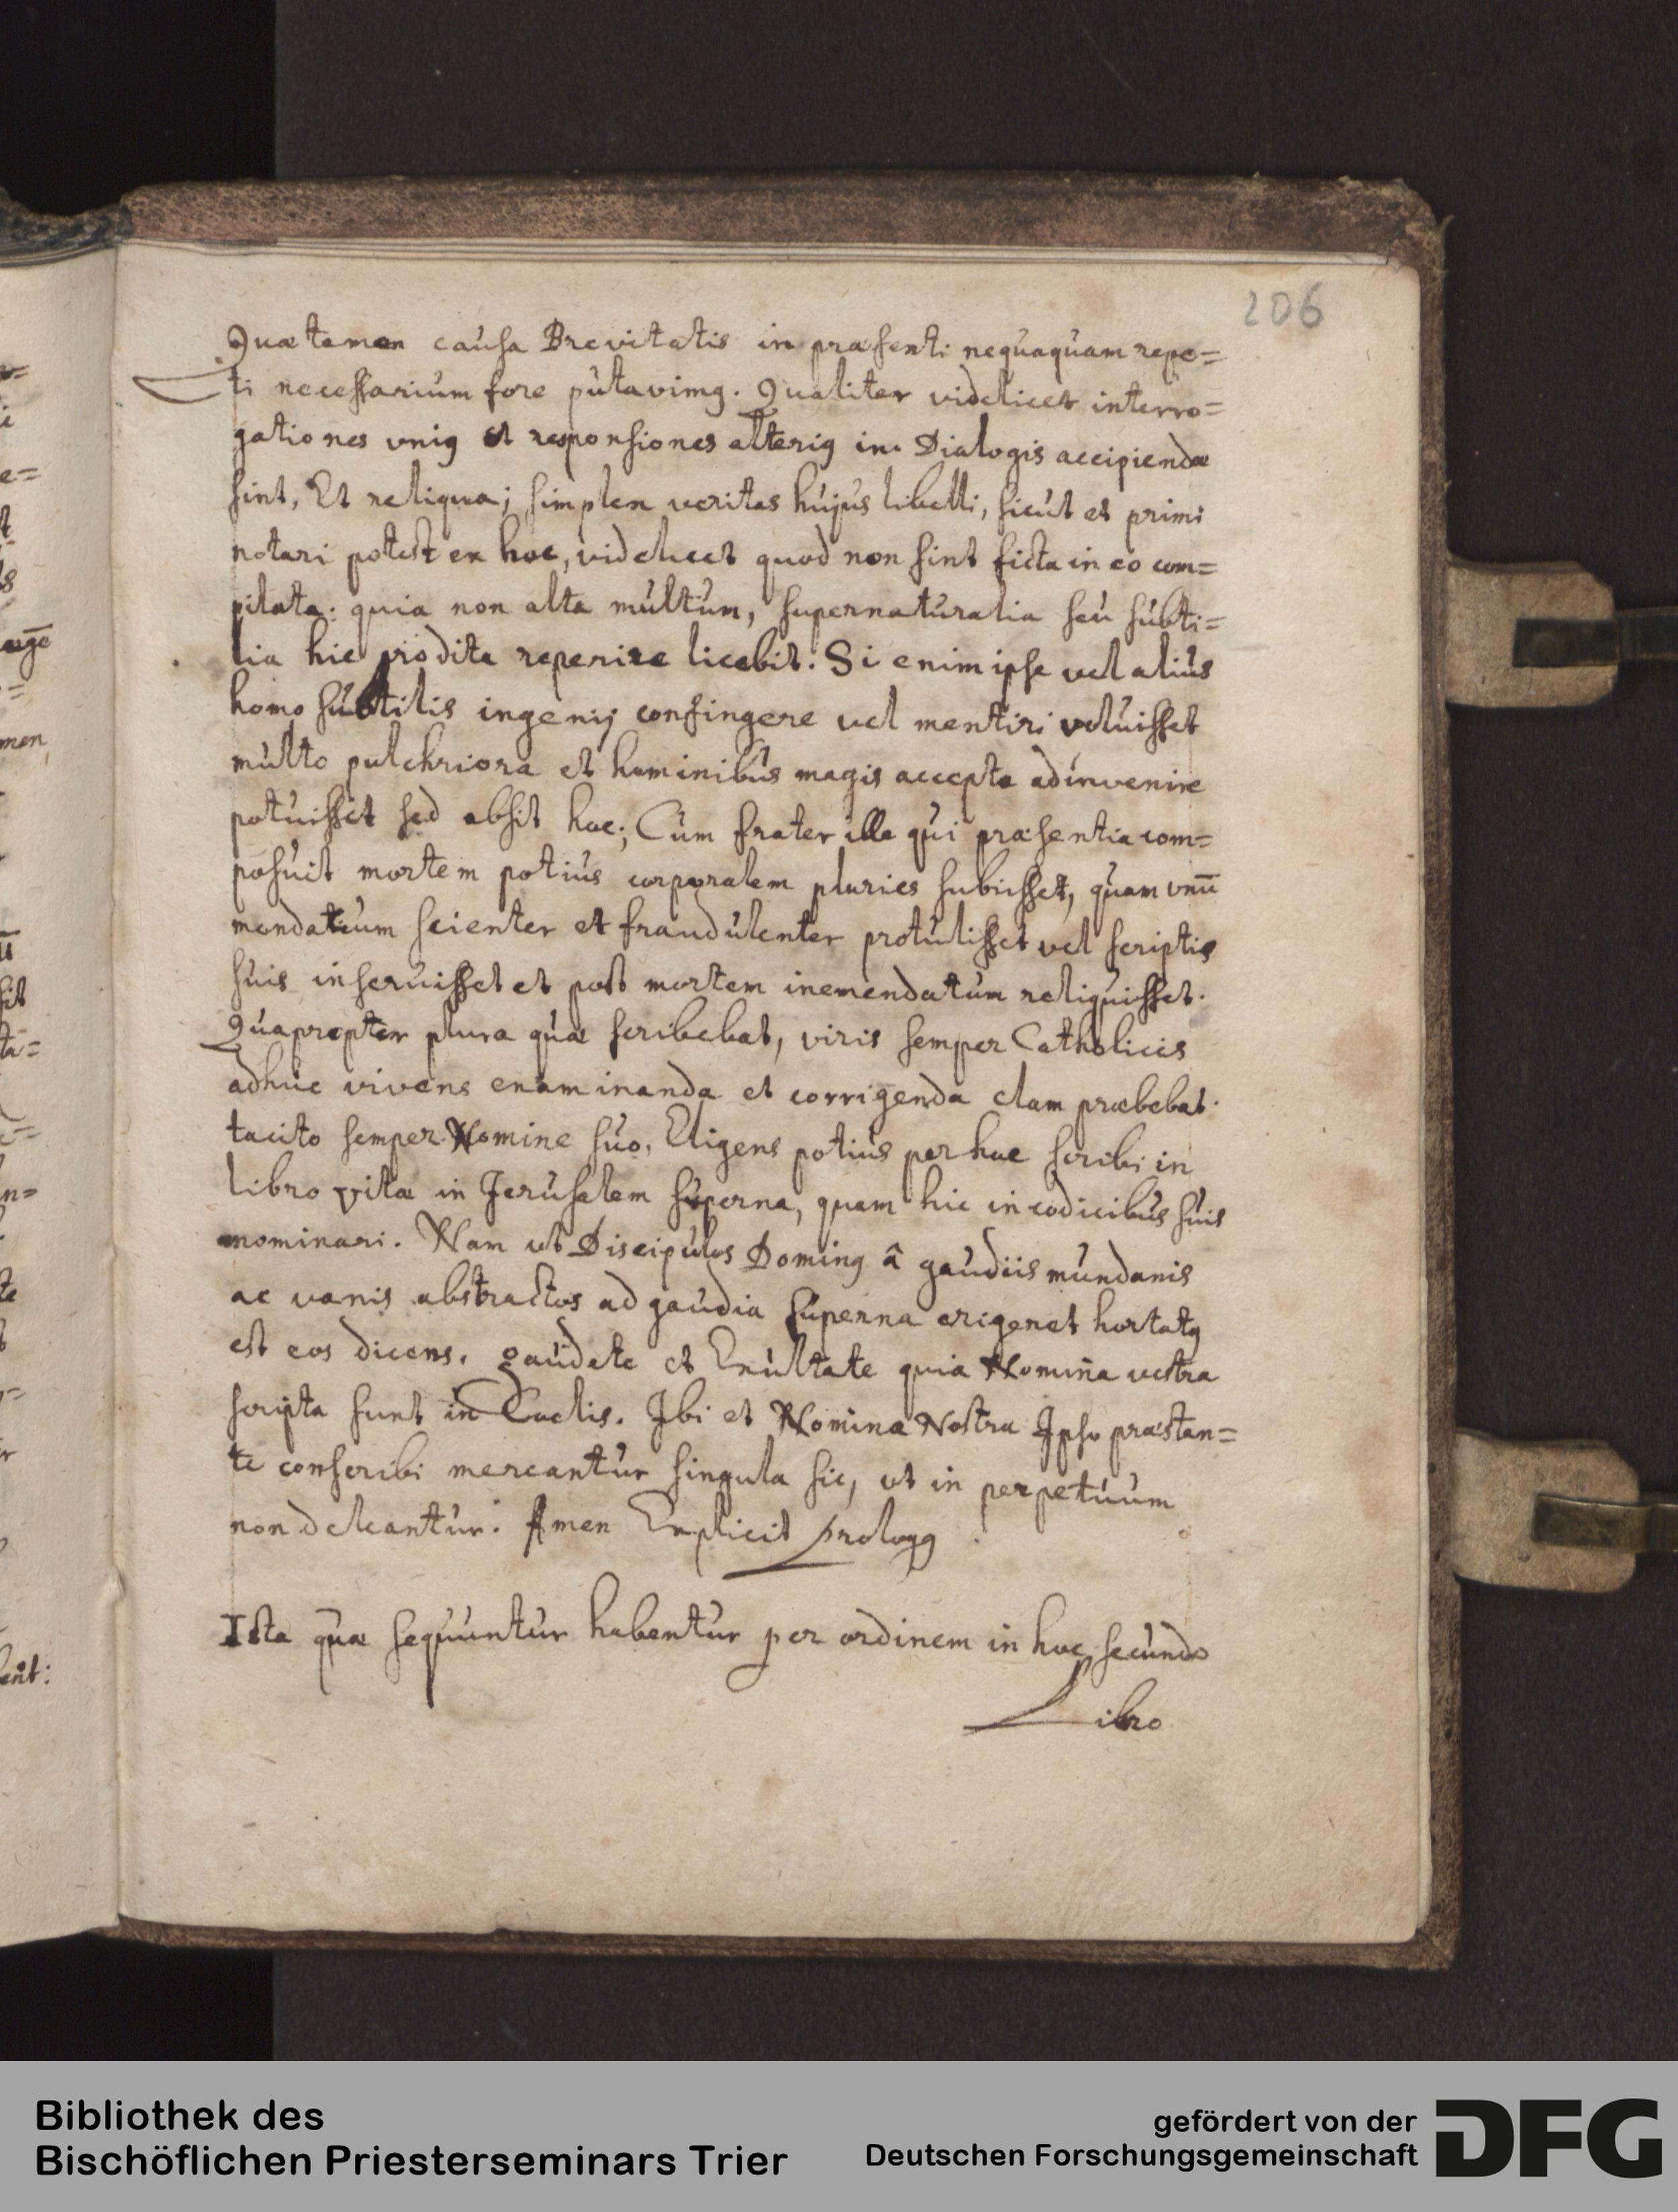 206
Quæ tamen causa Brevitatis in præsenti nequaquam repe=
ti necessarium fore putavimꝰ. Qualiter videlicet interro=
gationes vniꝰ et responsiones alteriꝰ in Dialogis accipiendæ
sint, Et reliqua; simplex veritas hujus libelli, sicut et primi
notari potest ex hoc, videlicet quod non sint ficta in eo com=
pilata: quia non alta multum, supernaturalia seu subti=
lia hic prodita reperire licebit. Si enim ipse vel alius
homo subtilis ingenij confingere vel mentiri voluisset
multo pulchriora et hominibus magis accepta adinvenire
potuisset sed absit hoc; Cum frater ille qui præsentia com=
posuit mortem potius corporalem pluries subiisset, quam vnū
mendatium scienter et fraudulenter protulisset vel scriptis
suis inseruisset et post mortem inemendatum reliquisset.
Quapropter plura quæ scribebat, viris semper Catholicis
adhuc vivens examinanda et corrigenda clam præbebat.
tacito semper Nomine suo, Eligens potius per hoc scribi in
libro vitæ in Jerusalem superna, quam hic in codicibus suis
nominari. Nam ut Discipulos Dominꝰ â gaudiis mundanis
ac vanis abstractos ad gaudia superna erigeret hortatꝰ
est eos dicens. gaudete et Exultate quia Nomina vestra
scripta sunt in Cœlis. Ibi et Nomina Nostra Ipso præstan=
te conscribi mereantur singula sic, ut in perpetuum
non deleantur. Amen Explicit prologꝰ
Ista quæ sequuntur habentur per ordinem in hoc secundo
Libro
men
Bibliothek des
Bischöflichen Priesterseminars Trier
gefördert von der
Deutschen Forschungsgemeinschaft
DFG